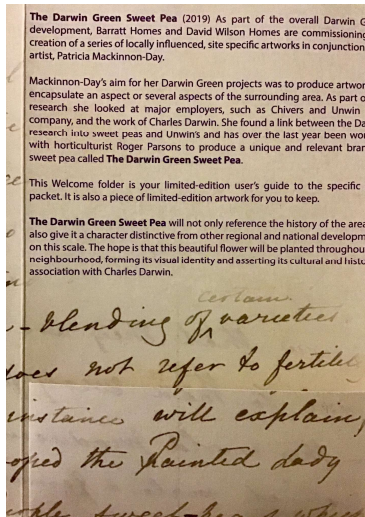 The Darwin Green Sweet Pea (2019) As part of the overall Darwin G
development, Barratt Homes and David Wilson Homes are commissioning
creation of a series of locally influenced, site specific artworks in conjunction
artist, Patricia Mackinnon-Day.
Mackinnon-Day's aim for her Darwin Green projects was to produce artwor
encapsulate an aspect or several aspects of the surrounding area. As part o
research she looked at major employers, such as Chivers and Unwin
company, and the work of Charles Darwin. She found a link between the Da
research into sweet peas and Unwin's and has over the last year been wor
with horticulturist Roger Parsons to produce a unique and relevant bran
sweet pea called The Darwin Green Sweet Pea.
This Welcome folder is your limited-edition user's guide to the specific
packet. It is also a piece of limited-edition artwork for you to keep.
The Darwin Green Sweet Pea will not only reference the history of the area
also give it a character distinctive from other regional and national developm
on this scale. The hope is that this beautiful flower will be planted throughou
neighbourhood, forming its visual identity and asserting its cultural and histo
association with Charles Darwin.
certain
- blending of ^ varieties
does not refer to fertility
instance will explain,
oped the Painted lady
sweet-pea